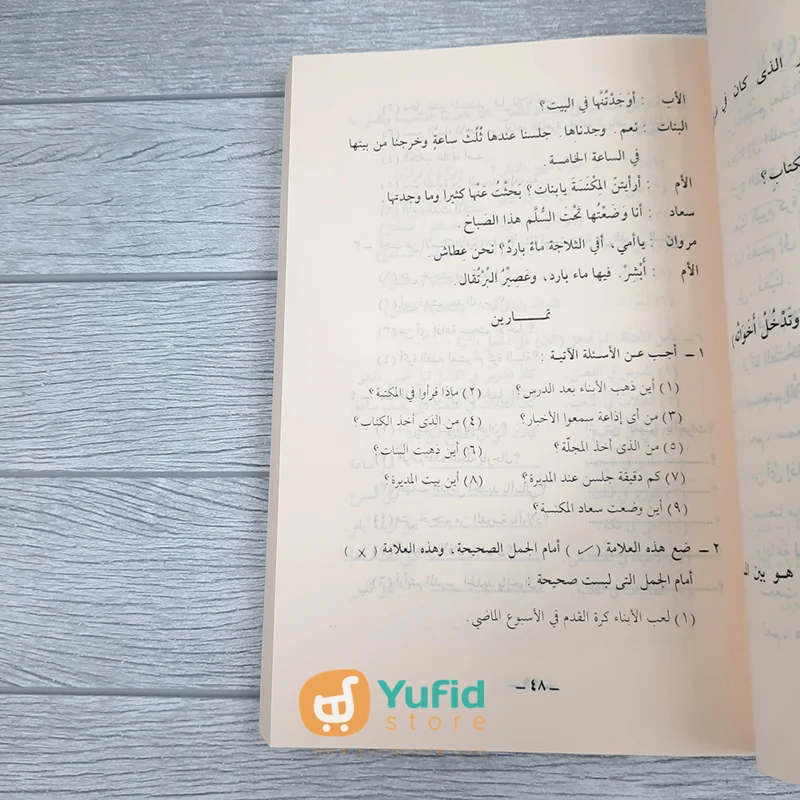 الأب : أوَجَدْتُنَّها في البيت؟
البنات : نعم. وجدناها. جلسنا عندها ثُلُثَ ساعةٍ وخرجنا من بيتها
في الساعة الخامسة.
الأم : أرأيتنَّ المِكْنَسَةَ يابنات؟ بَحَثْتُ عَنْها كثيرا وما وجدتها.
سعاد : أنا وَضَعْتُها تَحْتَ السُّلَّم هذا الصَباحَ.
مروان : ياأمي، أفي الثلاجة ماءٌ باردٌ؟ نحن عطاش.
الأم : أَبْشِرْ. فيها ماء بارد، وعَصِيْرُ البُرْتُقَال.
تمـــارين
١ – أجب عن الأسئلة الآتية :
(١) أين ذهب الأبناء بعد الدرس؟ (٢) ماذا قرأوا في المكتبة؟
(٣) من أى إذاعة سمعوا الأخبار؟ (٤) من الذى أخذ الكتاب؟
(٥) من الذى أخذ المجلّة؟ (٦) أين ذهبت البنات؟
(٧) كم دقيقة جلسن عند المديرة؟ (٨) أين بيت المديرة؟
(٩) أين وضعت سعاد المكنسة؟
٢ – ضع هذه العلامة (✓) أمام الجمل الصحيحة، وهذه العلامة (×)
أمام الجمل التى ليست صحيحة :
(١) لعب الأبناء كرة القدم في الأسبوع الماضي.
– ٤٨ –
الذى كان في
كتابِ؟
وتَدْخُلُ أَخَوَاتُهُ)
هو بين
Yufid
store